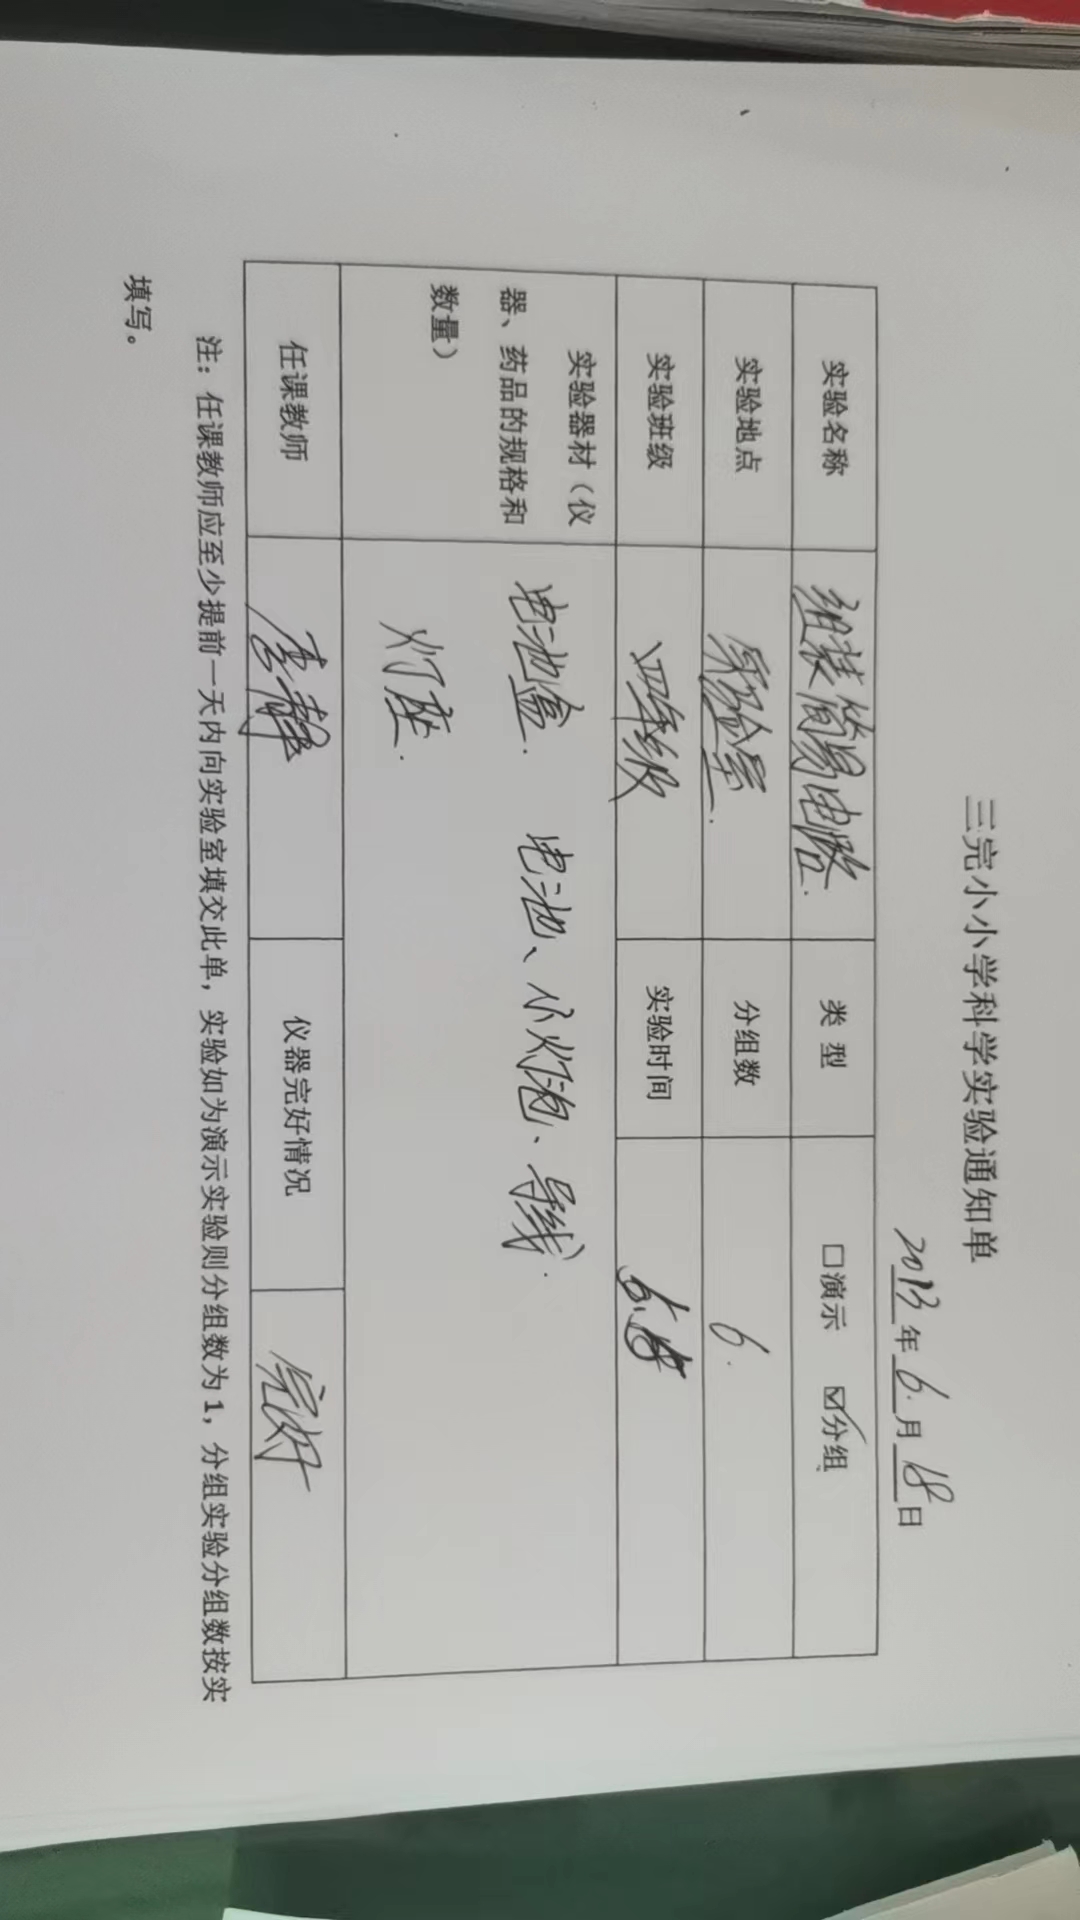 三完小小学科学实验通知单
2013年6月18日
实验名称 组装简易电路. 类 型 □演示 ☑分组
实验地点 实验室. 分组数 6.
实验班级 四年级 实验时间
实验器材（仪
器、药品的规格和
数量）
电池盒. 电池、小灯泡、导线.
灯座.
任课教师 李静 仪器完好情况 完好
注：任课教师应至少提前一天内向实验室填交此单，实验如为演示实验则分组数为1，分组实验分组数按实
填写。